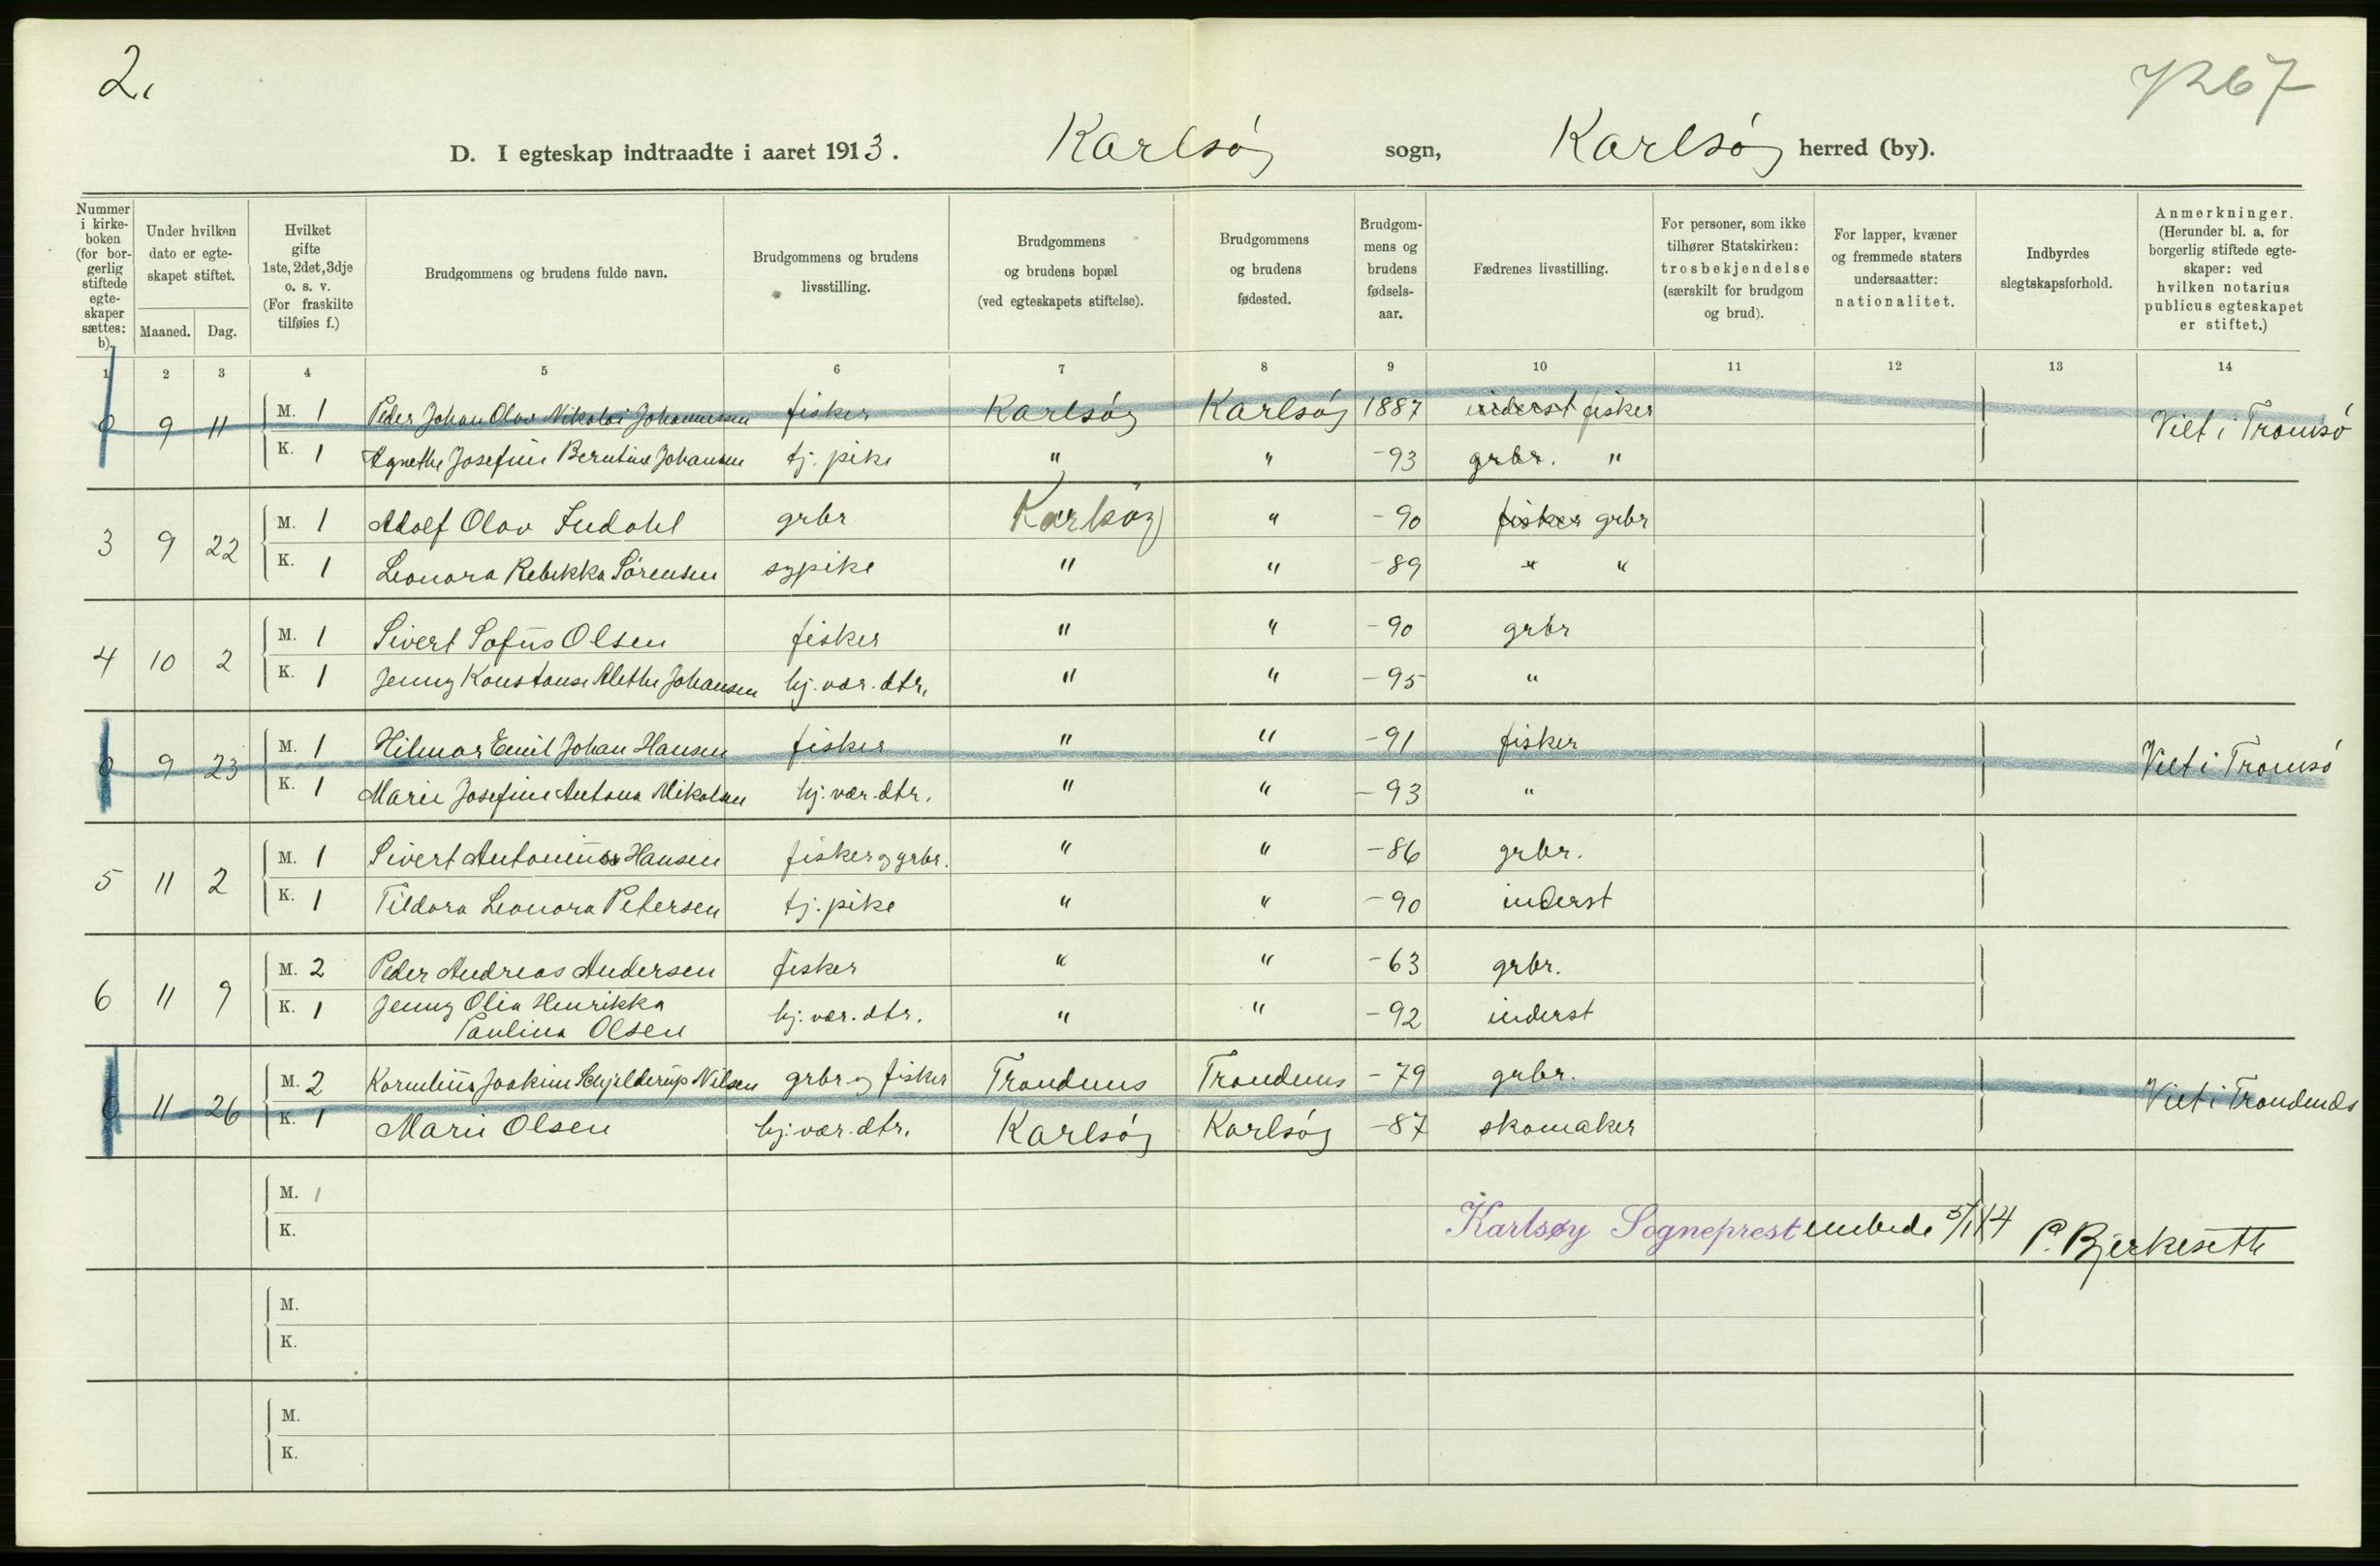 2.
7267
D. I egteskap indtraadte i aaret 1913. Karlsøy sogn, Karlsøy herred (by).
Nummer i kirke- boken (for bor- gerlig stiftede egte- skaper sættes: b).
Under hvilken dato er egte- skapet stiftet.
Maaned. Dag.
Hvilket gifte 1ste, 2det, 3dje o. s. v. (For fraskilte tilføies f.)
Brudgommens og brudens fulde navn.
Brudgommens og brudens livsstilling.
Brudgommens og brudens bopæl (ved egteskapets stiftelse).
Brudgommens og brudens fødested.
Brudgom- mens og brudens fødsels- aar.
Fædrenes livsstilling.
For personer, som ikke tilhører Statskirken: trosbekjendelse (særskilt for brudgom og brud).
For lapper, kvæner og fremmede staters undersaatter: nationalitet.
Indbyrdes slegtskapsforhold.
Anmerkninger. (Herunder bl. a. for borgerlig stiftede egte- skaper: ved hvilken notarius publicus egteskapet er stiftet.)
1 2 3 4 5 6 7 8 9 10 11 12 13 14
0 9 11 M. 1 Peder Johan Olav Nikolai Johannessen fisker Karlsøy Karlsøy 1887 inderst fisker Viet i Tromsø
K. 1 Agnethe Josefine Berntine Johansen tj. pike " " -93 grbr. "
3 9 22 M. 1 Adolf Olav Indahl grbr Karlsøy " -90 fisker grbr
K. 1 Leonora Rebekka Sørensen sypike " " -89 " "
4 10 2 M. 1 Sivert Sofus Olsen fisker " " -90 grbr
K. 1 Jenny Konstanse Alethe Johansen hj. vær. dtr. " " -95 "
0 9 23 M. 1 Hilmar Emil Johan Hansen fisker " " -91 fisker Viet i Tromsø
K. 1 Marie Josefine Antona Mikalsen hj. vær. dtr. " " -93 "
5 11 2 M. 1 Sivert Antonius Hansen fisker og grbr. " " -86 grbr.
K. 1 Tildora Leonora Petersen tj. pike " " -90 inderst
6 11 9 M. 2 Peder Andreas Andersen fisker " " -63 grbr.
K. 1 Jenny Olia Henrikka
Paulina Olsen hj. vær. dtr. " " -92 inderst
0 11 26 M. 2 Kornelius Joakim Schjelderup Nilsen grbr og fisker Trondenes Trondenes -79 grbr. Viet i Trondenes
K. 1 Marie Olsen hj. vær. dtr. Karlsøy Karlsøy -87 skomaker
M. 1
K.
Karlsøy Sogneprestembede 5/1 14 P. Bjerkeseth
M.
K.
M.
K.